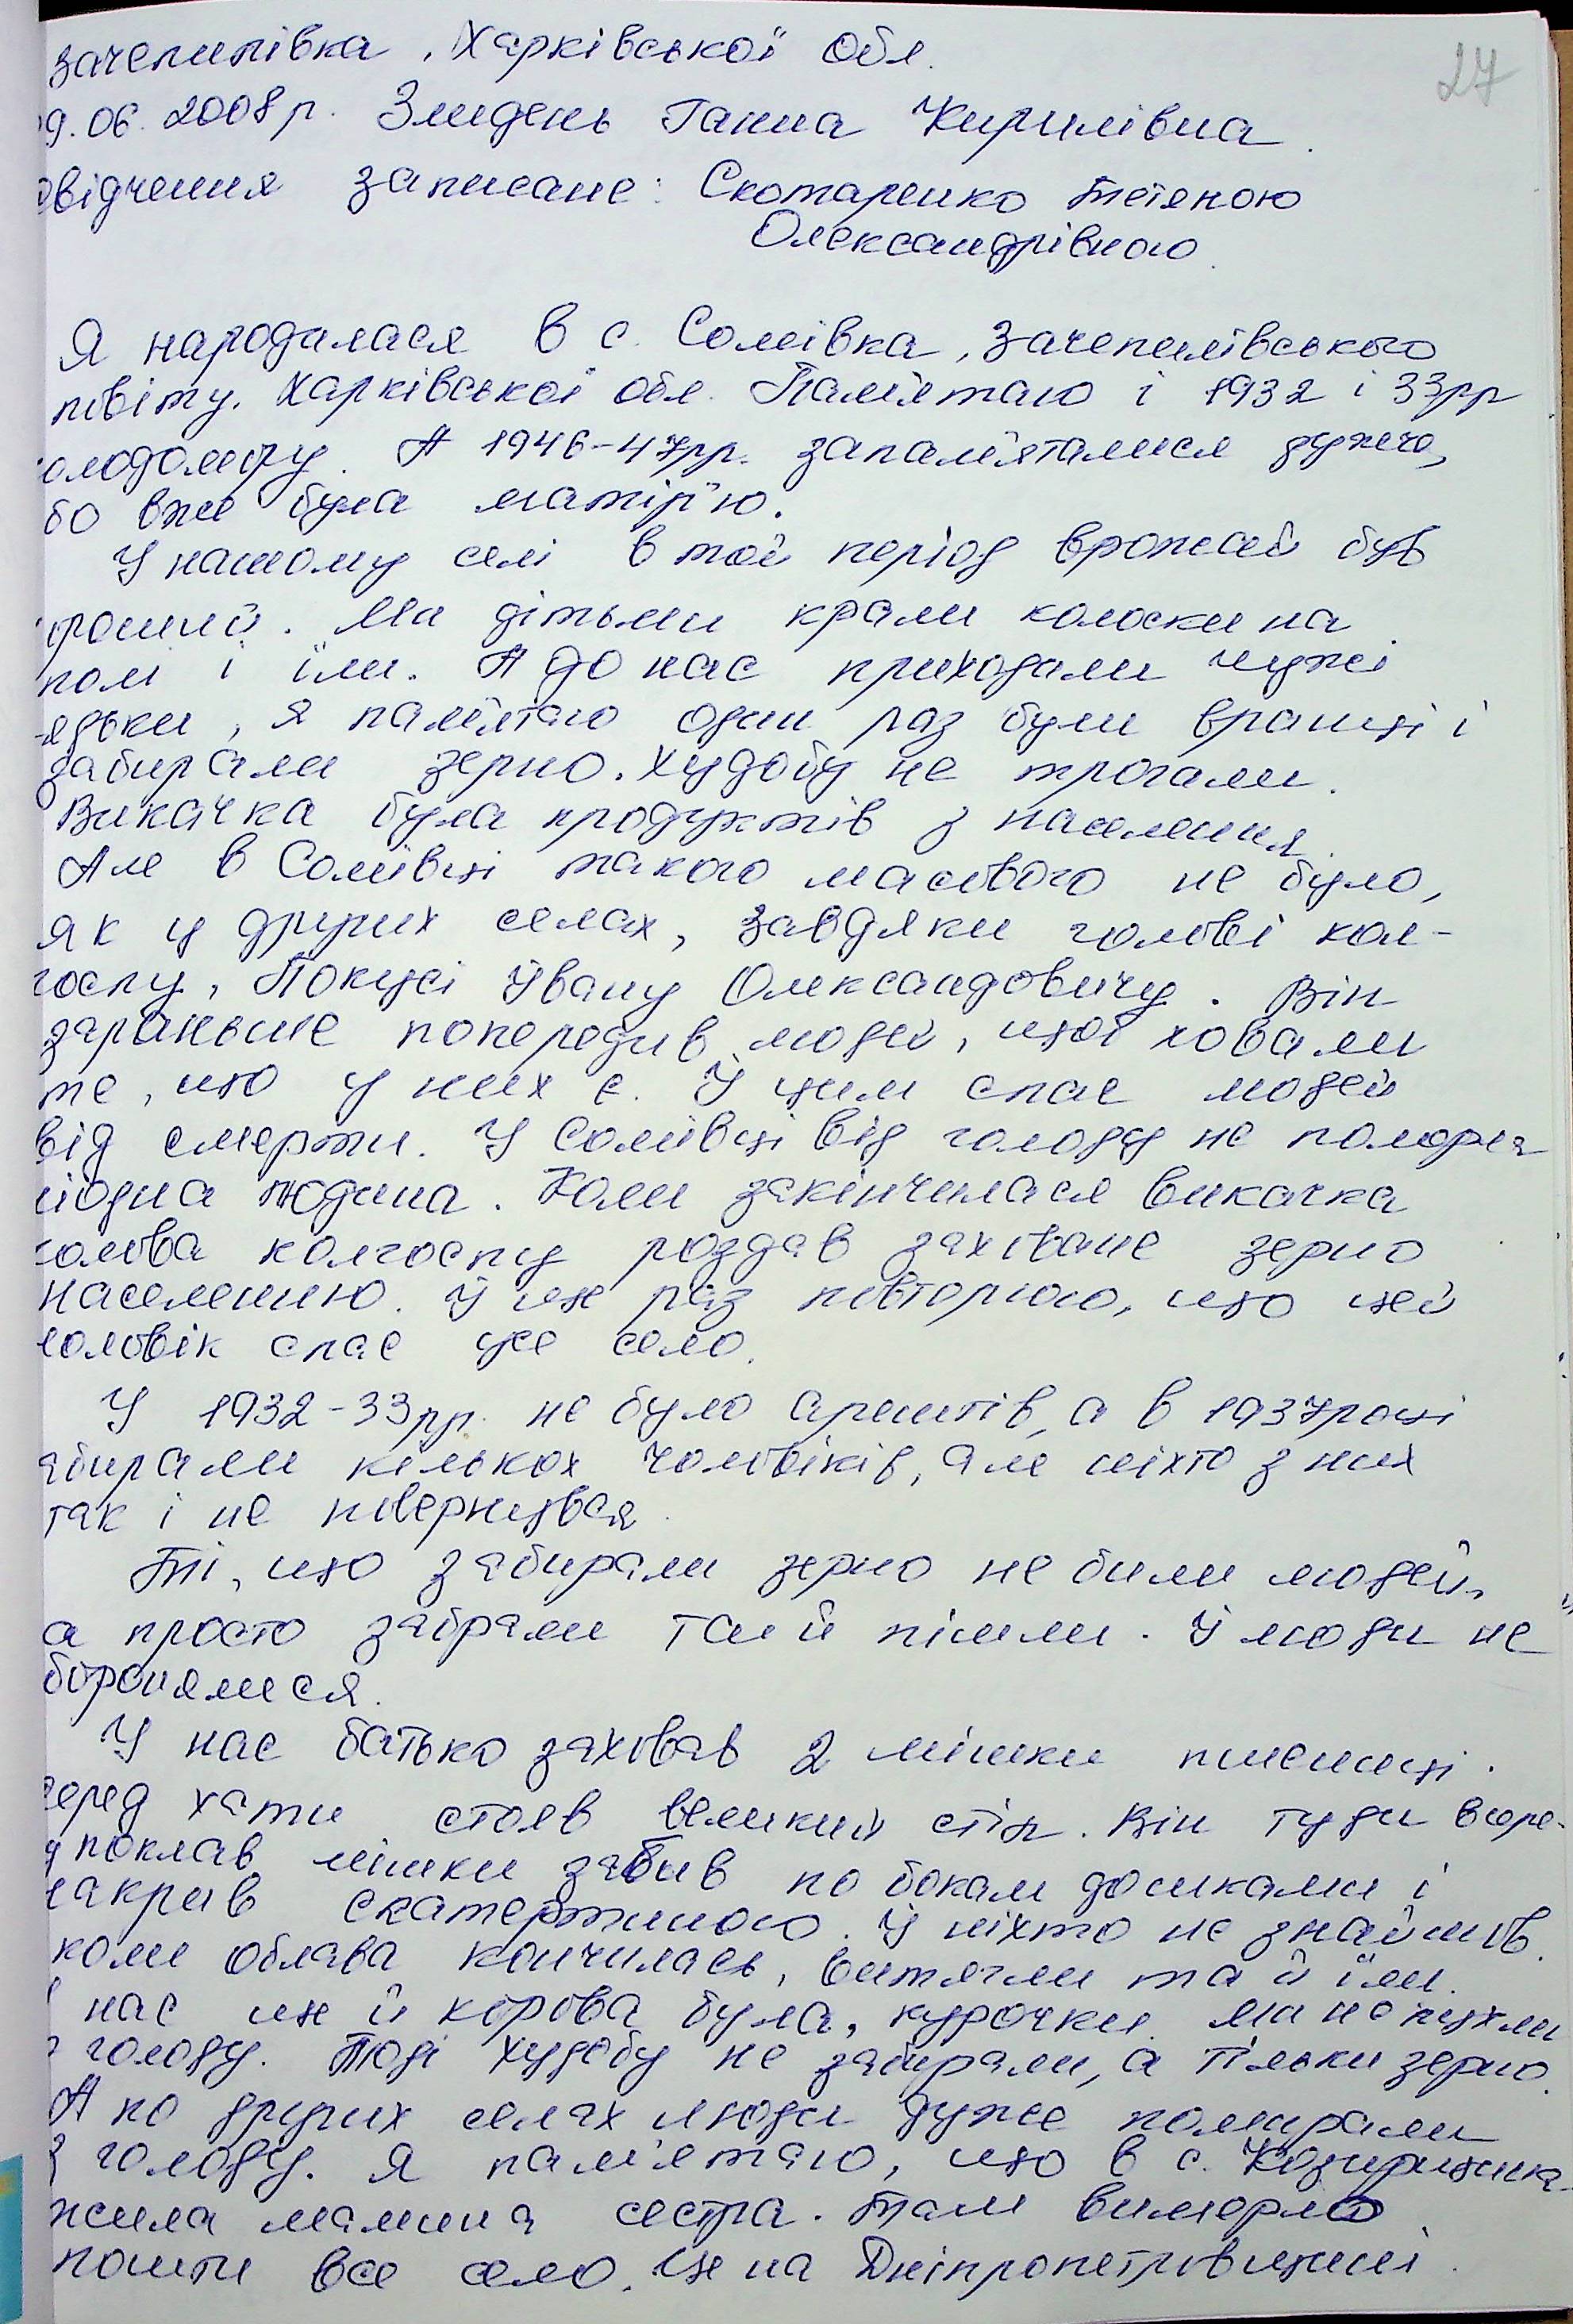 Зачепилівка, Харківської обл.
27
9.06.2008р. Злидень Ганна Кирилівна.
свідчення записане: Скотаренко Тетяною
Олександрівною.
Я народилася в с. Сомівка, Зачепилівського
повіту. Харківської обл. Пам'ятаю і 1932 і 33рр
голодомору. А 1946-47рр. запам'яталися дуже,
бо вже була матір'ю.
У нашому селі в той період врожай був
хроший. Ми дітьми крали колоски на
полі і їли. А до нас приходили чужі
дядьки, я пам'ятаю один раз були вранці і
забирали зерно. Худобу не трогали.
Викачка була продуктів з населення.
Але в Сомівці такого масового не було,
як у других селах, завдяки голові кол-
госпу, Покусі Івану Олександовичу. Він
зараньше попередив людей, щоб ховали
те, що у них є. І цим спас людей
від смерти. У Сомівці від голоду не померла
жодна людина. Коли закінчилася викачка
голова колгоспу роздав заховане зерно
населенню. І ще раз повторюю, що цей
чоловік спас усе село.
У 1932-33рр. не було арештів, а в 1937році
забирали кількох чоловіків, але ніхто з них
так і не повернувся.
Ті, що забирали зерно не били людей,
а просто забрали та й пішли. І люди не
боронилися.
У нас батько заховав 2 мішки пшениці.
серед хати стояв великий стіл. Він туди
поклав мішки забив по бокам дошками і
накрив скатертиною. І ніхто не знайшов.
коли облава кончилась, витягли та й їли.
В нас ще й корова була, курочки. Ми не пухли
з голоду. Тоді худобу не забирали, а тільки зерно.
А по других селах люди дуже помирали
з голоду. Я пам'ятаю, що в с.
жила мамина сестра. Там вимерло
пошти все село. Це на Дніпропетровщині.